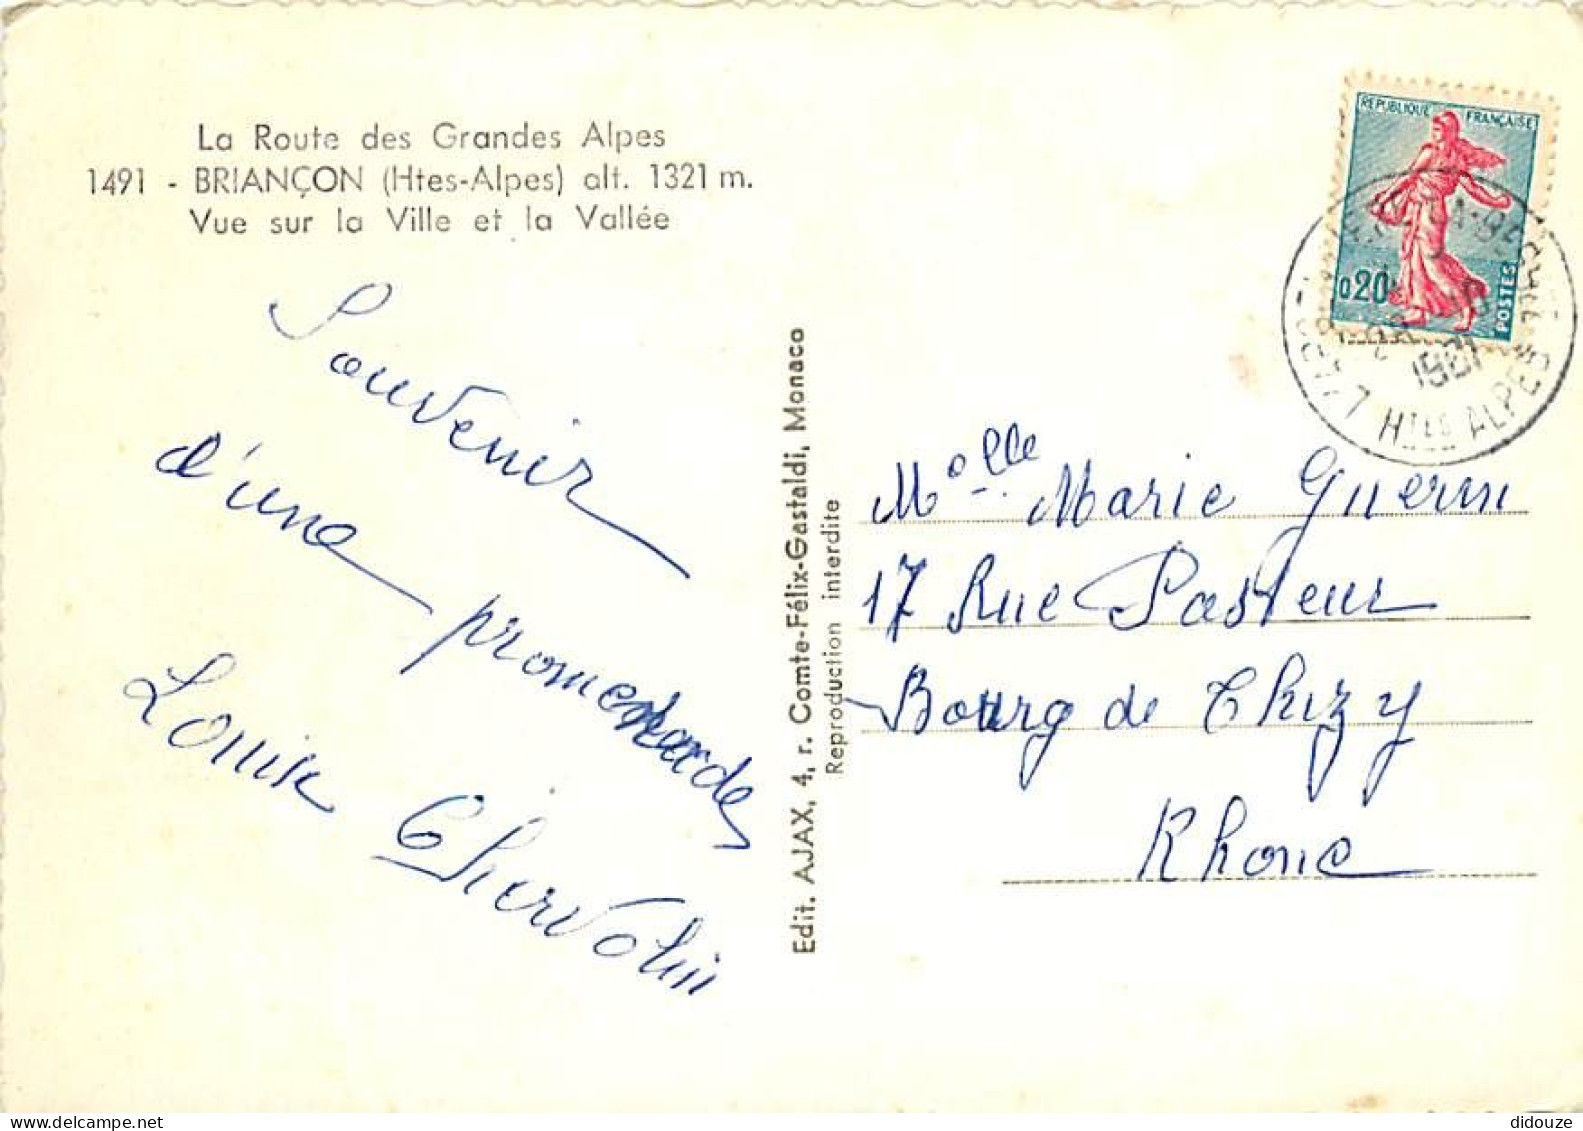 La Route des Grandes Alpes
1491 - BRIANÇON (Htes-Alpes) alt. 1321 m.
Vue sur la Ville et la Vallée
Souvenir
d'une promenade
Louise Chervolin
Edit. AJAX, 4, r. Comte-Félix-Gastaldi, Monaco
Reproduction interdite
REPUBLIQUE FRANÇAISE
0,20
POSTES
1961
Htes ALPES
Melle Marie Guerin
17 Rue Pasteur
Bourg de Thizy
Rhone
didouze